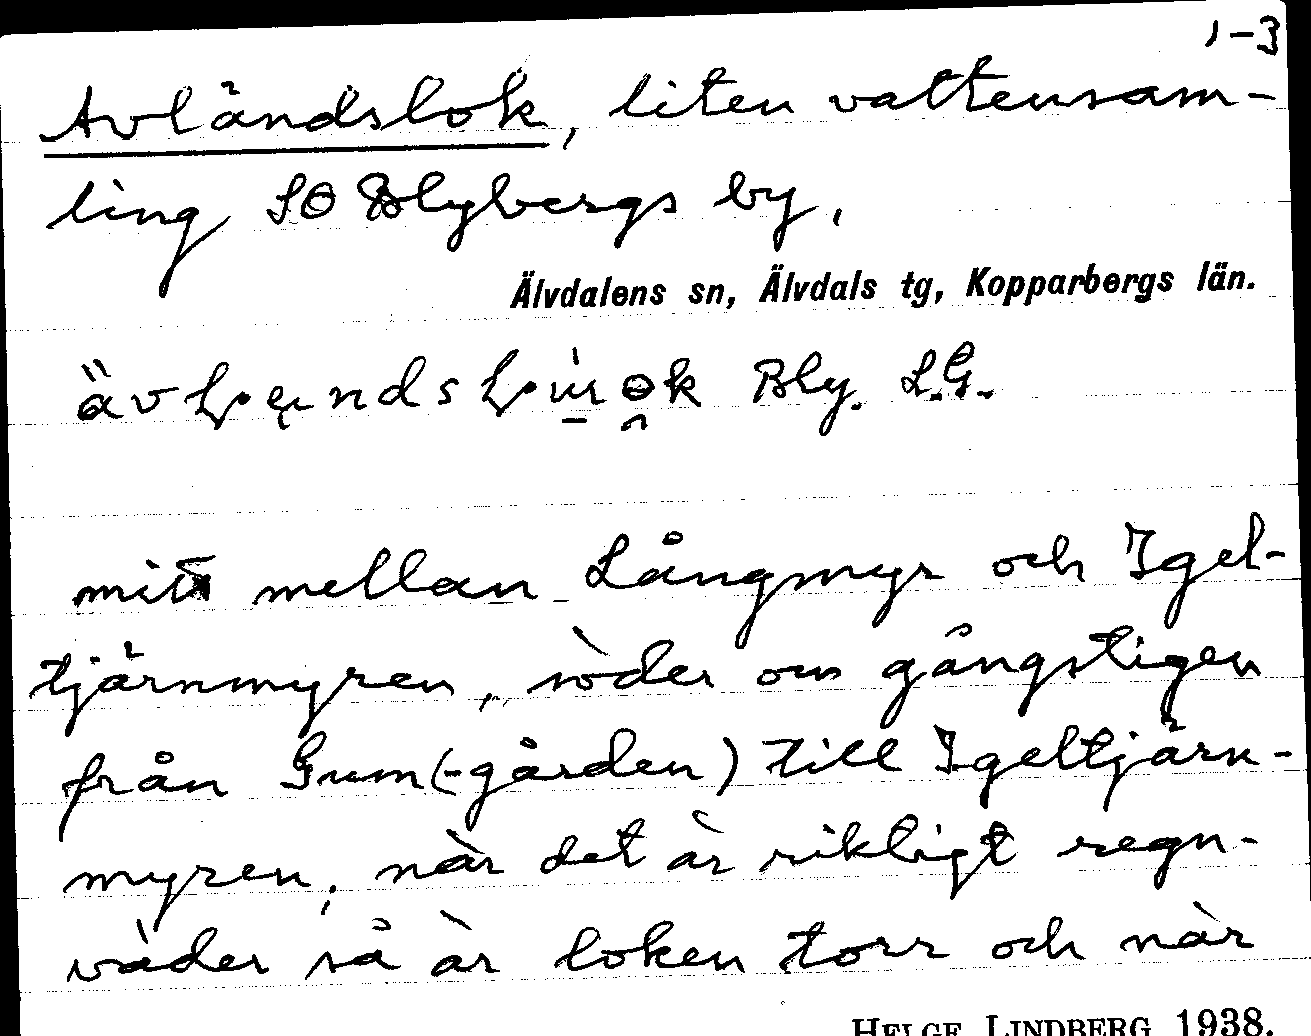 1-3
Avländslok, liten vattensam-
ling SO Blybergs by.
Älvdalens sn, Älvdals tg, Kopparbergs län.
Bly. L.G.
mitt mellan Långmyr och Igel-
tjärnmyren, söder om gångstigen
från Gum(-gården) till Igeltjärn-
myren; när det är rikligt regn-
väder så är loken torr och när
HELGE LINDBERG 1938.